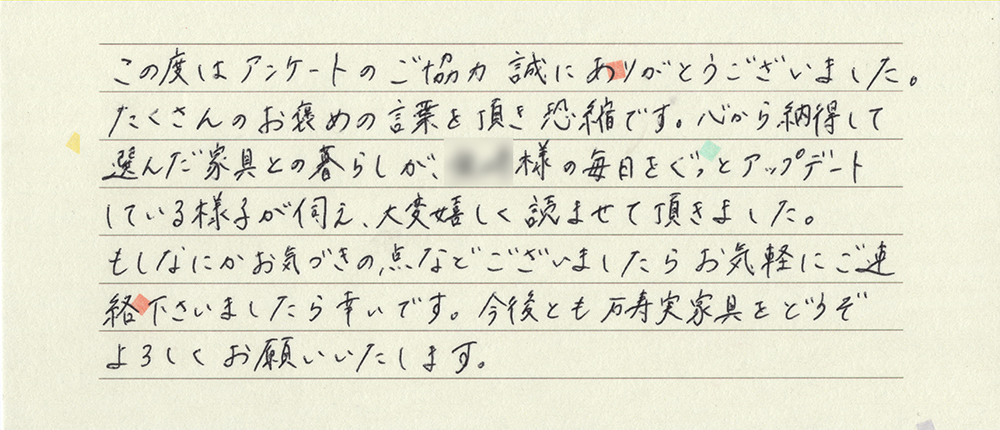 この度はアンケートのご協力 誠にありがとうございました。
たくさんのお褒めの言葉を頂き 恐縮です。心から納得して
選んだ家具との暮らしが、様の毎日をぐっとアップデート
している様子が伺え、大変嬉しく読ませて頂きました。
もしなにかお気づきの点などございましたらお気軽にご連
絡下さいましたら幸いです。今後とも万寿実家具をどうぞ
よろしくお願いいたします。